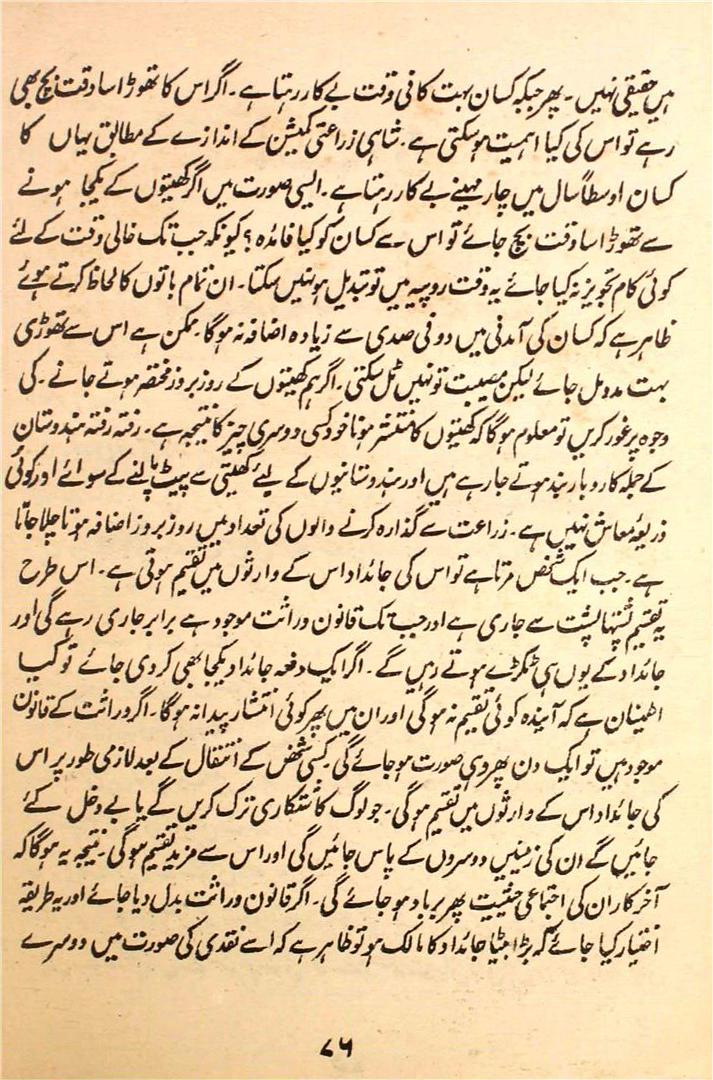 ہیں حقیقی نہیں۔ پھر جبکہ کسان بہت کافی وقت بے کار رہتا ہے۔ اگر اس کا تھوڑا سا وقت بچ بھی
رہے تو اس کی کیا اہمیت ہو سکتی ہے۔ شاہی زراعتی کمیشن کے اندازے کے مطابق یہاں کا
کسان اوسطاً سال میں چار مہینے بے کار رہتا ہے۔ ایسی صورت میں اگر کھیتوں کے یکجا ہونے
سے تھوڑا سا وقت بچ جائے تو اس سے کسان کو کیا فائدہ؟ کیونکہ جب تک خالی وقت کے لئے
کوئی کام تجویز نہ کیا جائے یہ وقت روپیہ میں تو تبدیل ہو نہیں سکتا۔ ان تمام باتوں کا لحاظ کرتے ہوئے
ظاہر ہے کہ کسان کی آمدنی میں دو فی صدی سے زیادہ اضافہ نہ ہوگا۔ ممکن ہے اس سے تھوڑی
بہت مدد مل جائے لیکن مصیبت تو نہیں ٹل سکتی۔ اگر ہم کھیتوں کے روز بروز مختصر ہوتے جانے۔ کی
وجوہ پر غور کریں تو معلوم ہوگا کہ کھیتوں کا منتشر ہونا خود کسی دوسری چیز کا نتیجہ ہے۔ رفتہ رفتہ ہندوستان
کے جملہ کاروبار بند ہوتے جارہے ہیں اور ہندوستانیوں کے لیے کھیتی سے پیٹ پالنے کے سوائے اور کوئی
ذریعۂ معاش نہیں ہے۔ زراعت سے گذارہ کرنے والوں کی تعداد میں روز بروز اضافہ ہوتا چلا جاتا
ہے۔ جب ایک شخص مرتا ہے تو اس کی جائداد اس کے وارثوں میں تقسیم ہوتی ہے۔ اس طرح
یہ تقسیم پشتہا پشت سے جاری ہے اور جب تک قانون وراثت موجود ہے برابر جاری رہے گی اور
جائداد کے یوں ہی ٹکڑے ہوتے رہیں گے۔ اگر ایک دفعہ جائداد یکجا بھی کردی جائے تو کیا
اطمینان ہے کہ آیندہ کوئی تقسیم نہ ہوگی اور ان میں پھر کوئی انتشار پیدا نہ ہوگا۔ اگر وراثت کے قانون
موجود ہیں تو ایک دن پھر وہی صورت ہو جائے گی۔ کسی شخص کے انتقال کے بعد لازمی طور پر اس
کی جائداد اس کے وارثوں میں تقسیم ہوگی۔ جو لوگ کاشتکاری ترک کریں گے یا بے دخل کئے
جائیں گے ان کی زمینیں دوسروں کے پاس جائیں گی اور اس سے مزید تقسیم ہوگی۔ نتیجہ یہ ہوگا کہ
آخر کار ان کی اجتماعی حیثیت پھر برباد ہو جائے گی۔ اگر قانون وراثت بدل دیا جائے اور یہ طریقہ
اختیار کیا جائے کہ بڑا بیٹا جائداد کا مالک ہو تو ظاہر ہے کہ اسے نقدی کی صورت میں دوسرے
۷۶